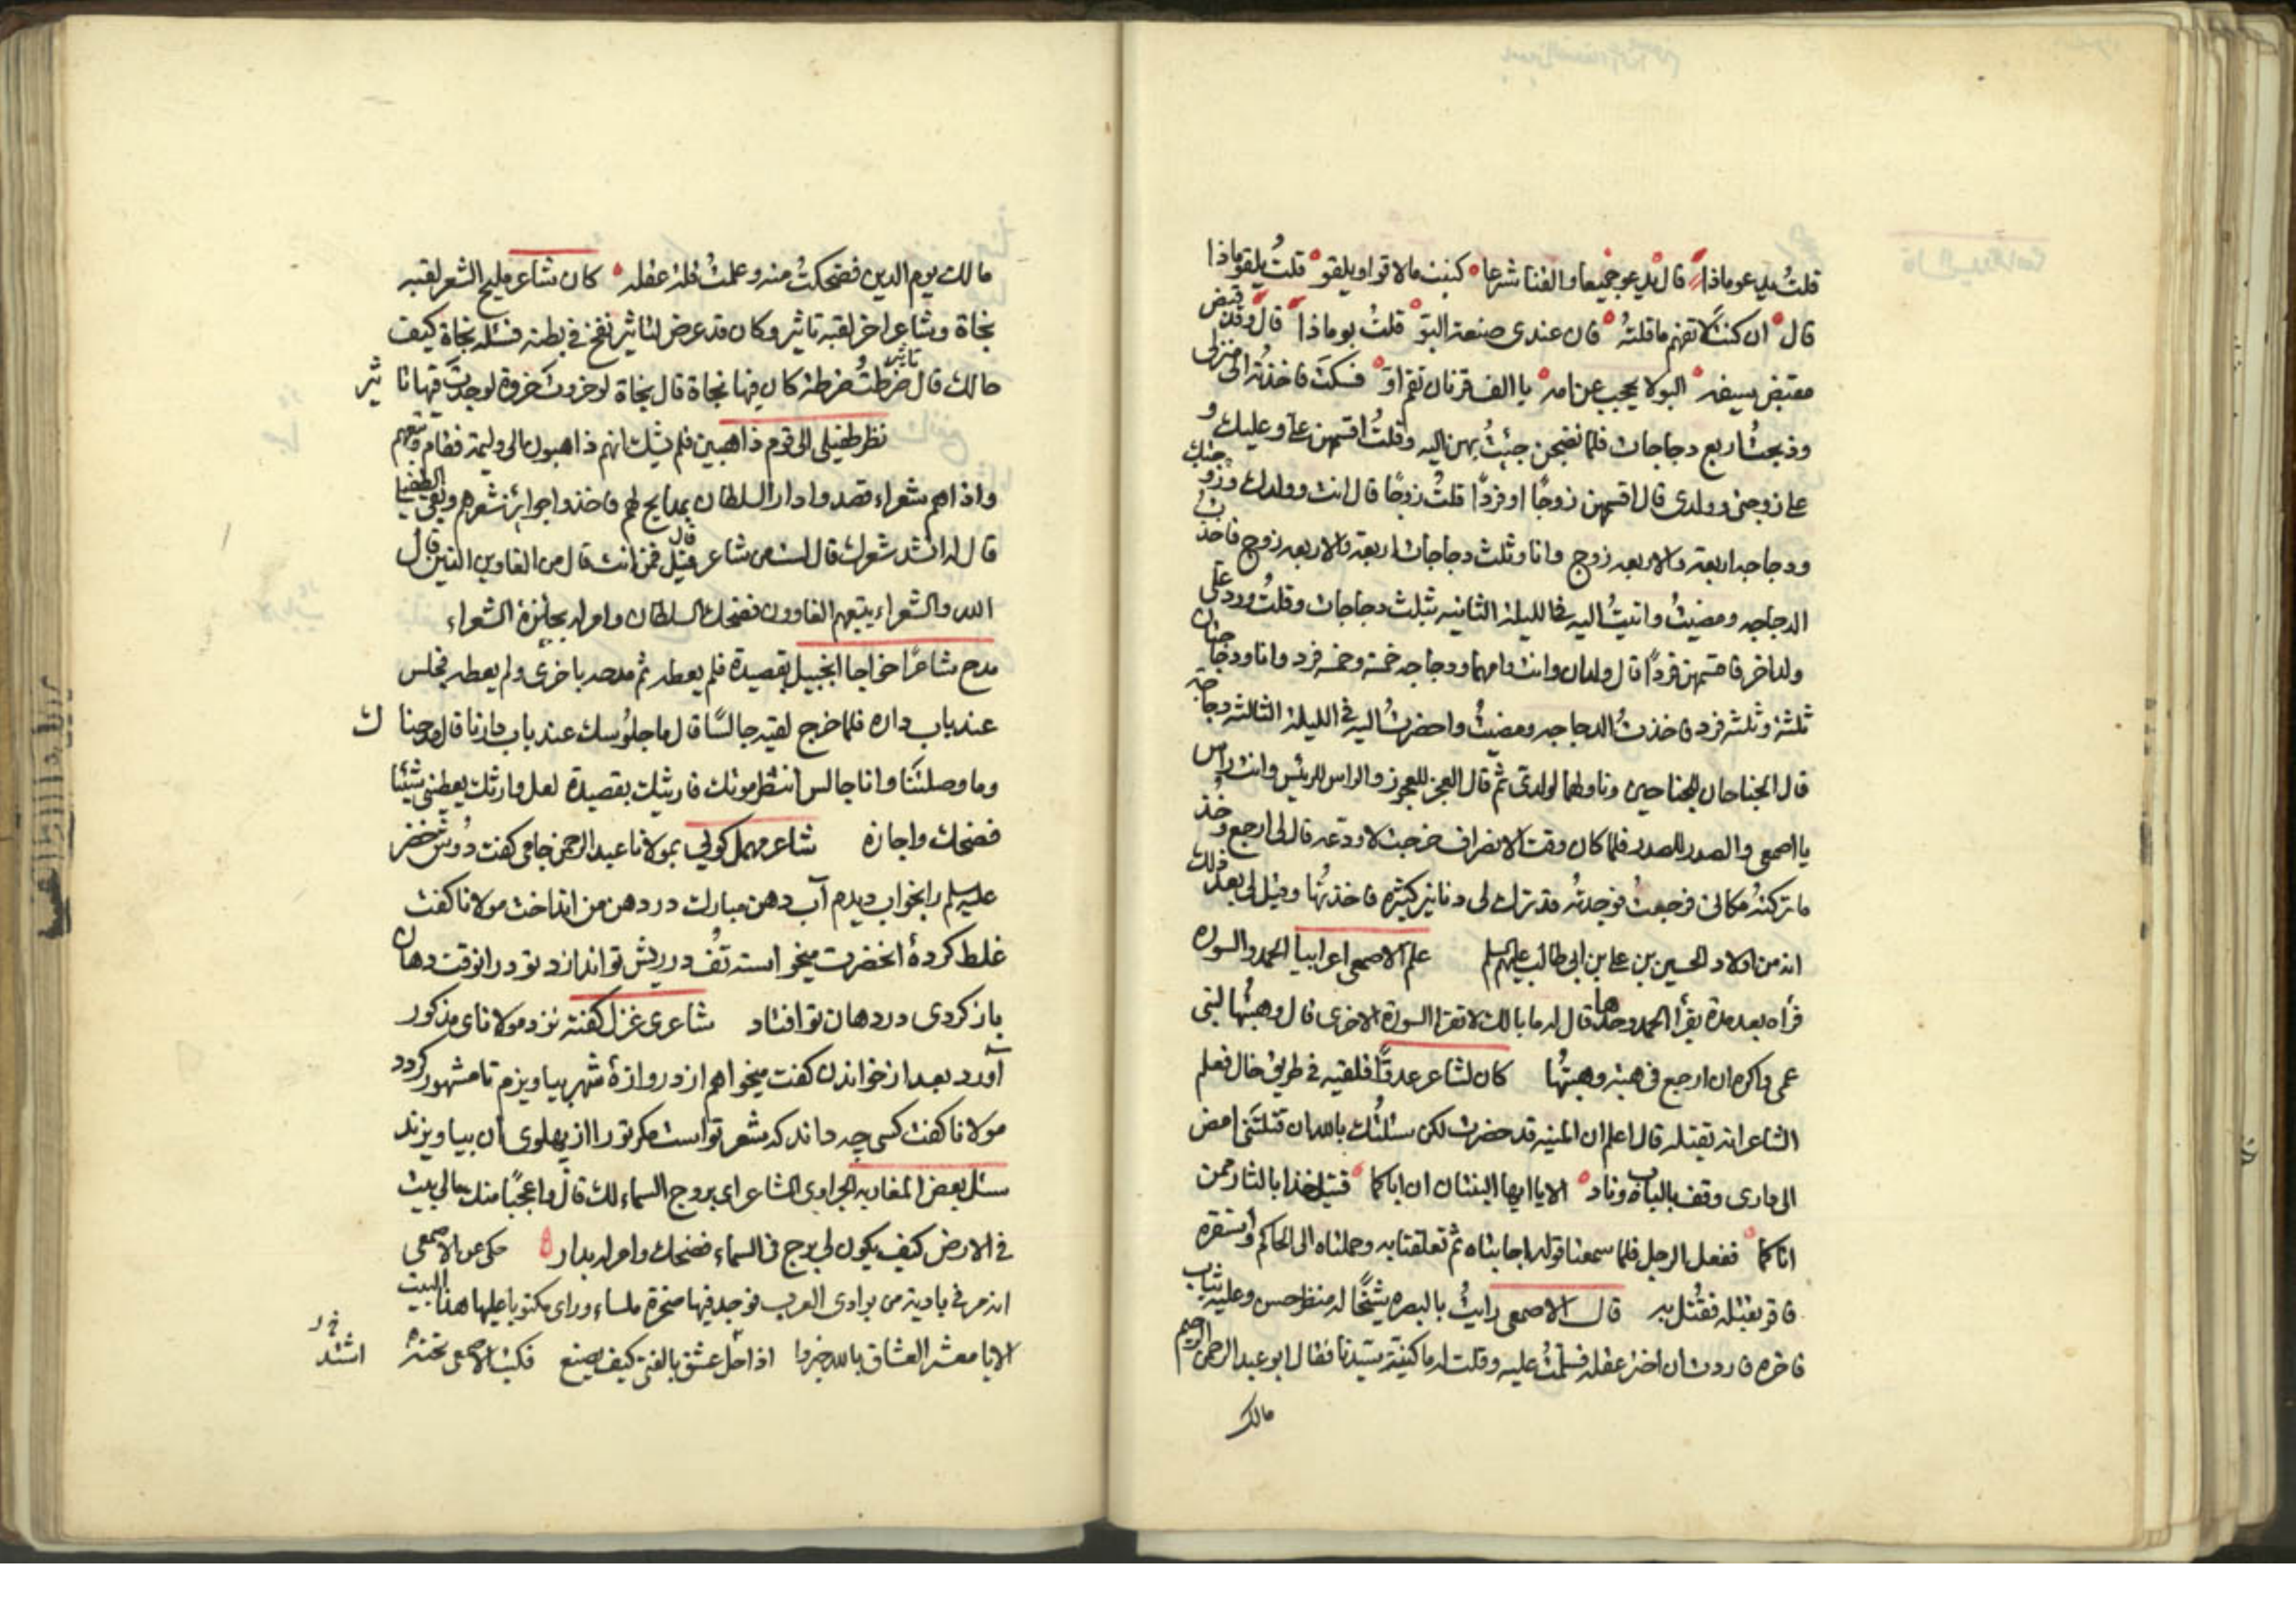 قلتُ يدعو ماذا قال يدعو جميعا والقنا شرعا كبنت ما لاقوا ويلقو قلتُ يلقو ماذا
قال ان كنت لا تفهم ما قلتُه فان عندى صنعة البوّ قلتُ بو ماذا قال وقد قبض
مقبض سيفه البو لا يحجب عن امه يا الف قرنان تقم اوّ فسكت فاخذته الى منزلى
وذبحتُ اربع دجاجات فلما نضجن جئتُ بهن اليه وقلتُ اقسمهن علىّ وعليك و
على زوجتى وولدى قال اقسمهن زوجًا او فردًا قلتُ زوجًا قال انت وولدك وزوجتك
ودجاجه اربعة والاربعه زوج وانا وثلث دجاجات اربعة والاربعه زوج فاخذت
الدجاجه ومضيتُ واتيتُ اليه فى الليلة الثانيه بثلث دجاجات وقلتُ ورد علىّ
ولد اخر فاقسمهن فردًا قال ولدان وانت وامهما ودجاجه خمسة وخمسه فرد وانا ودجاجتان
ثلثة وثلثه فرد فاخذتُ الدجاجه ومضيتُ واحضرتُ اليه فى الليلة الثالثه دجاجة
قال الجناحان للجناحين وناولهما لولدىّ ثم قال العجز للعجوز والراس للرئيس وانت راس
يا اصمعى والصدر للصدر فلما كان وقت الانصراف خرجت لاودعه قال لى ارجع وخُذ
ما تركتهُ مكانى فرجعتُ فوجدتهُ قد ترك لى دنانير كثيره فاخذتُها وقيل لى بعد ذلك
انه من اولاد الحسين بن على بن ابى طالب عليهم السلم علم الاصمعى اعرابياً الحمد والسوره
فرأه بعد مدة يقرأ الحمد وحدها قال له ما بالك لا تقرا السورة الاخرى قال وهبتُها لبنى
عمى واكره ان ارجع فى هبة وهبتُها كان لشاعر عدوّاً فلقيه فى طريق خال فعلم
الشاعر انه يقتله قال اعلم ان المنيه قد حضرت لكن سئلتُك بالله ان قتلتنى امض
الى دارى وقف بالباب وناد الا يا ايها البنتان ان اباكما قتيل خذا بالثار ممن
اتاكما ففعل الرجل فلما سمعنا قوله اجابتاه ثم تعلقتا به وحملتاه الى الحاكم واستقره
فاقر بقتله فقُتل به قال الاصمعى رايتُ بالبصره شيخًا له منظر حسن وعليه ثياب
فاخره فاردت ان اختبر عقله فسلمتُ عليه وقلت له ما كنية سيدنا فقال ابو عبد الرحمن الرحيم
مالك
مالك يوم الدين فضحكتُ منه وعلمتُ قلة عقله كان شاعر مليح الشعر لقبه
نجاة وشاعر اخر لقبه تاثير وكان قد عرض لتاثير نفخ فى بطنه فسئله نجاة كيف
حالك قال تاثير ضرطتُ ضرطة كان فيها نجاة قال نجاة لو خروت خروة لوجدت فيها تاثير
نظر طفيلى الى قوم ذاهبين فلم يشك انهم ذاهبون الى وليمة فقام وتبعهم
واذا هم شعراء قصدوا دار السلطان بمدايح لهم فاخذوا جوائز شعرهم وبقى الطفيلى
قال له انشد شعرك قال لست من شاعر قيل فمن انت قال من الغاوين الذين قال
الله والشعراء يتبعهم الغاوون فضحك السلطان وامر له بجائزة الشعراء
مدح شاعرًا خواجا البخيل بقصيدة فلم يعطه ثم مدحه باخرى ولم يعطه فجلس
عند باب داره فلما خرج لقيه جالسًا قال ما جلوُسك عند باب دارنا قال مدحناك
وما وصلتنا وانا جالس انتظر موتك فارثيك بقصيدة لعل وارثك يعطنى شيئا
فضحك واجازه شاعر مهمل گوئى بمولانا عبد الرحمن جامى گفت دُوش خضر
عليه سلم را بخواب ديدم آب دهن مبارك در دهن من انداخت مولانا گفت
غلط كردهٔ انحضرت ميخواسته تُف در ريش تو اندازد تو در انوقت دهان
باز كردى در دهان تو افتاد شاعرى غزل گفته نزد مولاناى مذكور
آورد بعد از خواندن گفت ميخواهم از دروازهٔ شهر بياويزم تا مشهور گردد
مولانا گفت كسى چه داند كه شعر تو است مگر تو را از پهلوى آن بياويزند
سئل بعض المغاربه الجراوى الشاعر اى بروج السماء لك قال واعجبًا منك ما لى بيت
فى الارض كيف يكون لى برج فى السماء فضحك وامر له بدار حكى عن الاصمعى
انه مر فى بادية من بوادى العرب فوجد فيها صخرة ملساء وراى مكتوبا عليها هذا البيت
الا يا معشر العشاق بالله خبروا اذا حل عشق بالفتى كيف يصنع فكتب الاصمعى تحته